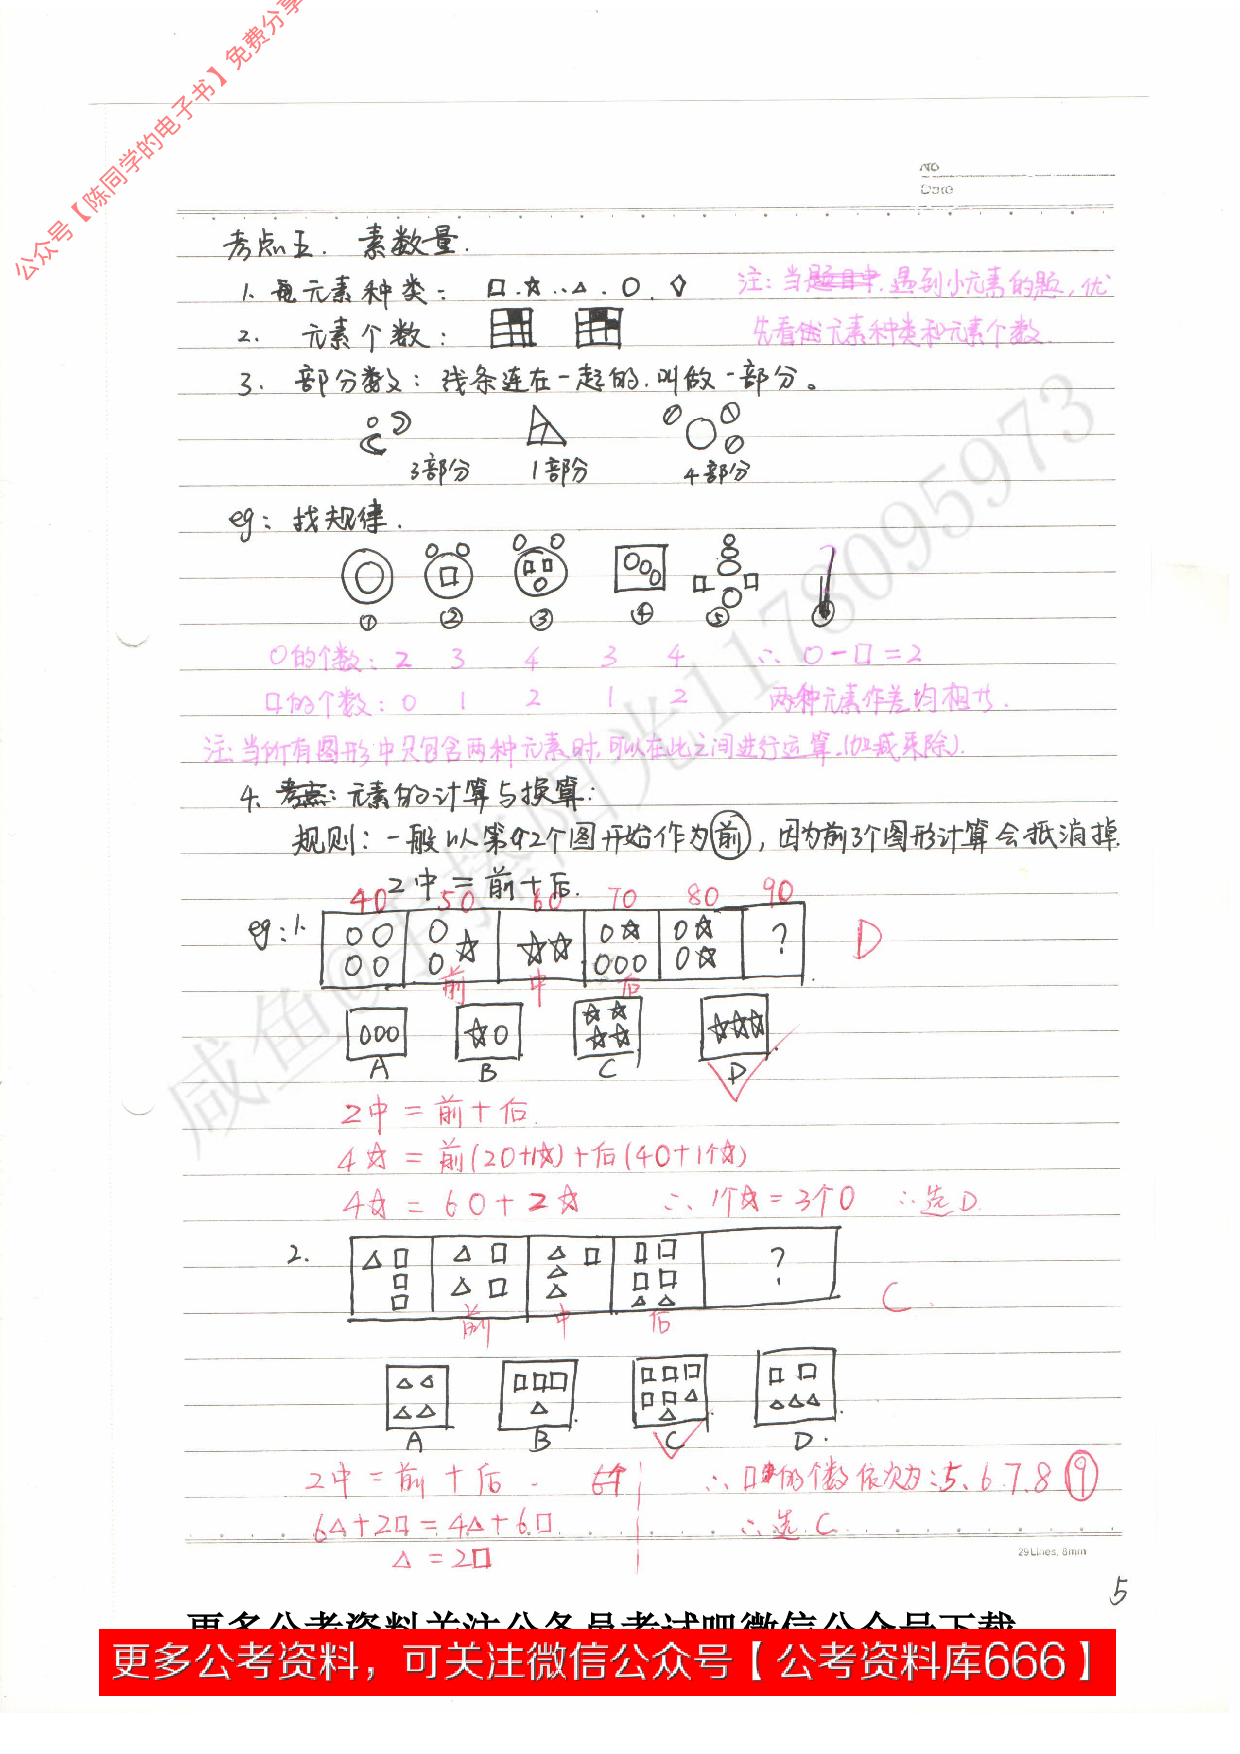 公众号【陈同学的电子书】免费分享
NO
Date
考点五. 素数量.
1. 元素种类: □.☆..△.○.◇
注: 当题目中.遇到小元素的题,优
2. 元素个数:
先看元素种类和元素个数.
3. 部分数: 线条连在一起的.叫做一部分。
3部分 1部分 4部分
eg: 找规律.
① ② ③ ④ ⑤
○的个数: 2 3 4 3 4 ∴ ○-□=2
□的个数: 0 1 2 1 2 两种元素作差均相等.
注:当所有图形中只包含两种元素时,可以在此之间进行运算.(加减乘除).
4. 考点: 元素的计算与换算:
规则: 一般以第2个图开始作为前, 因为前3个图形计算会抵消掉.
2中=前+后.
4○ 5○ 6○ 7○ 8○ 9○
eg:1. ? D
前 中 后
A B C D
2中=前+后.
4☆=前(2○+1☆)+后(4○+1个☆)
4☆=6○+2☆ ∴1个☆=3个○ ∴选D.
2. ? C.
前 中 后
A B C D.
2中=前+后. ∴□的个数依次为:5、6.7.8⑨
6△+2□=4△+6□. ∴选C.
△=2□
29Lines, 8mm
5
更多公考资料关注公务员考试吧微信公众号下载
更多公考资料，可关注微信公众号【公考资料库666】
咸鱼@手捧阳光1178095973